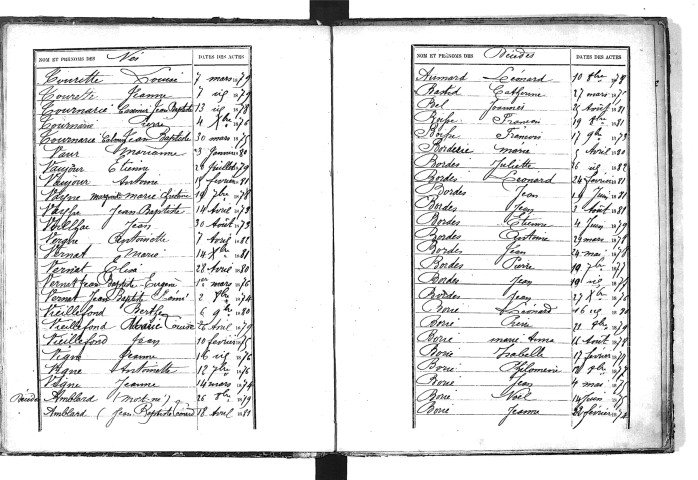 NOM ET PRÉNOMS DES Nés DATES DES ACTES
Courette Louise 7 mars 1879
Courette Jeanne 7 id 79
Cournarie Casimir Jean Baptiste 13 id 78
Cournarie Pierre 4 Xbre 78
Cournarie Jean Baptiste 30 mars
Vaur Marianne 3 80
Vaujour Etienne 79
Vaujour Antoine 18 février 81
Vayne Marguerite Marie 19 7bre 78
Vayne Jean Baptiste 14 avril 78
Jean 30 Août 73
Vergne Antoinette 7 avril
Vernat Marie 14 Xbre 81
Vernat Elisa 28 Avril 80
Vernet Jean Baptiste Eugène 1er mars 76
Vernet Jean Baptiste 2 74
Vieillefond Berthe 6 9bre 80
Vieillefond Marie Louise 26 Avril 79
Vieillefond Jean 10 février 75
Vigne Jeanne 16 id 76
Vigne Antoinette 12 7bre 76
Vigne Jeanne 14 mars 74
Décédés Amblard (mort né) 26 8bre 79
Amblard (Jean Baptiste Léonard 18 Avril 81
NOM ET PRÉNOMS DES Décédés DATES DES ACTES
Aumard Léonard 10 8bre 78
Bastid Catherine 27 mars 75
Bel Joannès Août 81
François 19 8bre 81
François 17 9bre 73
Borderie Marie Avril 80
Bordes Juliette 26 id 82
Bordes Léonard 24 février 81
Bordes Jean Juin 81
Bordes Jean 2 Août 81
Bordes Etienne 4 Juin 79
Bordes Antoine 29 mars 78
Bordes Jean 24 mai 78
Bordes Pierre 19 7bre 77
Bordes Jean 19 id 75
Bordes Jean 27 Xbre 76
Borie Léonard 16 id 80
Borie Pierre 8bre 79
Borie Marie Anna 16 Août 78
Borie Isabelle 17 février 78
Borie Philomène 77
Borie Jean 4 mai 75
Borie Noël 14 Juin 75
Borie Jeanne février 74